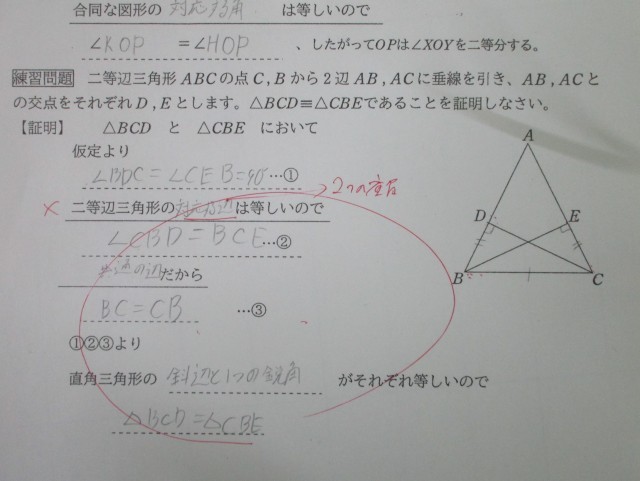 合同な図形の 対応する角 は等しいので
∠KOP =∠HOP 、したがってOPは∠XOYを二等分する。
練習問題 二等辺三角形ABCの点C,Bから2辺AB,ACに垂線を引き、AB,ACと
の交点をそれぞれD,Eとします。△BCD≡△CBEであることを証明しなさい。
【証明】 △BCD と △CBE において
仮定より
∠BDC=∠CEB=90°…①
2つの底角
× 二等辺三角形の対応する辺は等しいので
∠CBD=BCE…②
共通の辺だから
BC=CB …③
①②③より
直角三角形の 斜辺と1つの鋭角 がそれぞれ等しいので
△BCD=△CBE
A
D
E
B
C